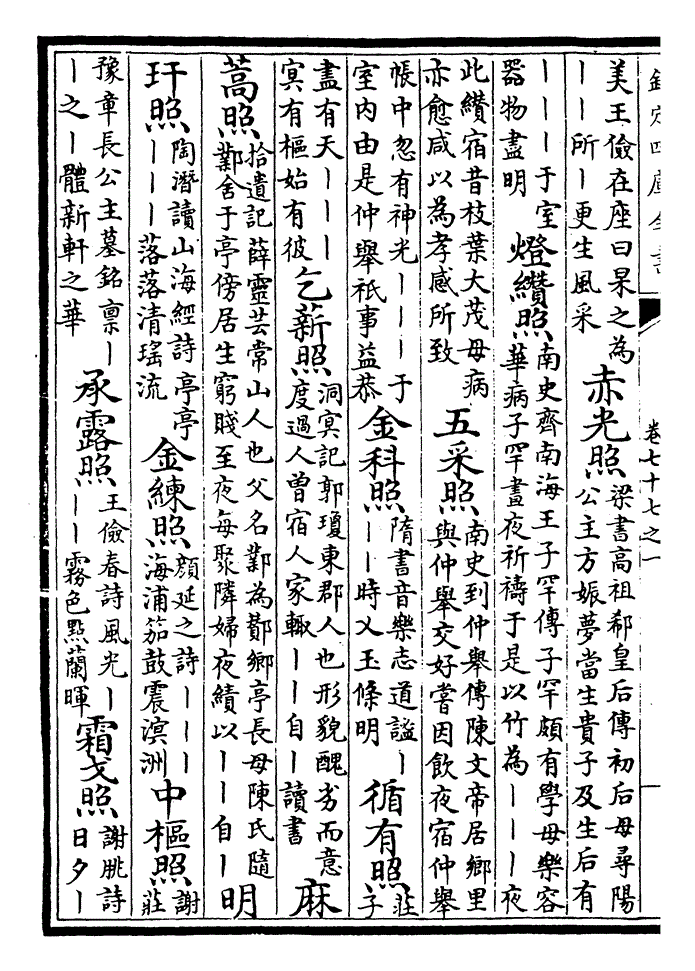 欽定四庫全書
卷七十七之一
美王儉在座曰杲之為
丨丨所丨更生風采
赤光照
梁書高祖郗皇后傳初后母尋陽
公主方娠夢當生貴子及生后有
丨丨丨于室
器物盡明
燈纘照
南史齊南海王子罕傳子罕頗有學母樂容
華病子罕晝夜祈禱于是以竹為丨丨丨夜
此纘宿昔枝葉大茂母病
亦愈咸以為孝感所致
五采照
南史到仲舉傳陳文帝居鄉里
與仲舉交好嘗因飲夜宿仲舉
帳中忽有神光丨丨丨于
室內由是仲舉祇事益恭
金科照
隋書音樂志道謐丨
丨丨時乂玉條明
循有照
莊
子
盡有天丨丨丨
冥有樞始有彼
乞薪照
洞冥記郭瓊東郡人也形貌醜劣而意
度過人曾宿人家輒丨丨自丨讀書
麻
蒿照
拾遺記薛靈芸常山人也父名鄴為酇鄉亭長母陳氏隨
鄴舍于亭傍居生窮賤至夜每聚隣婦夜績以丨丨自丨
明
玕照
陶潛讀山海經詩亭亭
丨丨丨落落清瑤流
金練照
顏延之詩丨丨丨
海浦笳鼓震溟洲
中樞照
謝
莊
豫章長公主墓銘禀丨
丨之丨體新軒之華
承露照
王儉春詩風光丨
丨丨霧色點蘭暉
霜戈照
謝朓詩
日夕丨